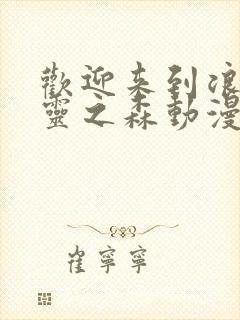 歡迎来到浪
靈之森動漫
崔寧寧